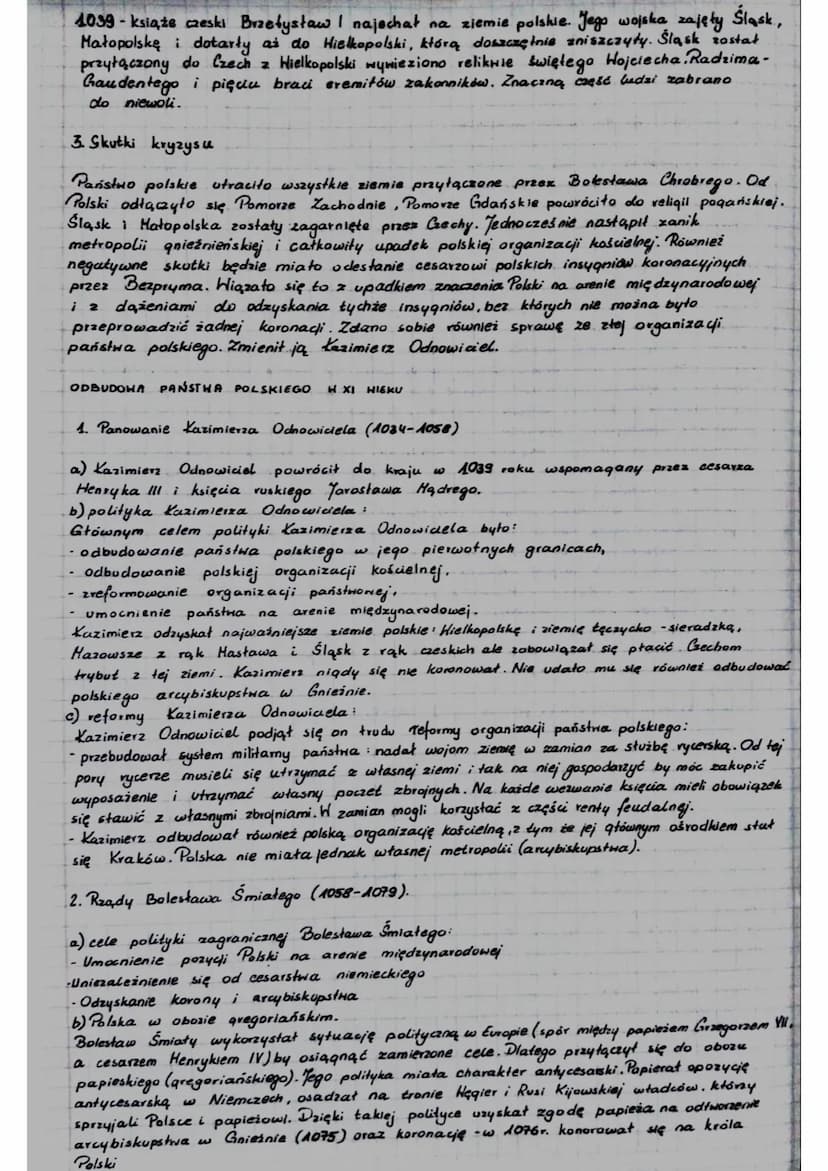 1039 - książe czeski Brzetysław I najechał na ziemie polskie. Jego wojska zajęły Śląsk,
Małopolskę i dotarły aż do Wielkopolski, którą doszczętnie zniszczyły. Śląsk został
przyłączony do Czech z Wielkopolski wywieziono relikwie świętego Wojciecha, Radzima-
Gaudentego i pięciu braci eremitów zakonników. Znaczną część ludzi zabrano
do niewoli.
3. Skutki kryzysu
Państwo polskie utraciło wszystkie ziemie przyłączone przez Bolesława Chrobrego. Od
Polski odłączyło się Pomorze Zachodnie, Pomorze Gdańskie powróciło do religii pogańskiej.
Śląsk i Małopolska zostały zagarnięte przez Czechy. Jednocześnie nastąpił zanik
metropolii gnieźnieńskiej i całkowity upadek polskiej organizacji kościelnej. Również
negatywne skutki będzie miało odesłanie cesarzowi polskich insygniów koronacyjnych
przez Bezpryma. Wiązało się to z upadkiem znaczenia Polski na arenie międzynarodowej
i z dążeniami do odzyskania tychże insygniów, bez których nie można było
przeprowadzić żadnej koronacji. Zdano sobie również sprawę ze złej organizacji
państwa polskiego. Zmienił ją Kazimierz Odnowiciel.
ODBUDOWA PAŃSTWA POLSKIEGO W XI WIEKU
1. Panowanie Kazimierza Odnowiciela (1034-1058)
a) Kazimierz Odnowiciel powrócił do kraju w 1039 roku wspomagany przez cesarza
Henryka III i księcia ruskiego Jarosława Mądrego.
b) polityka Kazimierza Odnowiciela:
Głównym celem polityki Kazimierza Odnowiciela było:
- odbudowanie państwa polskiego w jego pierwotnych granicach,
- odbudowanie polskiej organizacji kościelnej,
- zreformowanie organizacji państwowej,
- umocnienie państwa na arenie międzynarodowej.
Kazimierz odzyskał najważniejsze ziemie polskie: Wielkopolskę i ziemię łęczycko-sieradzką,
Mazowsze z rąk Masława i Śląsk z rąk czeskich ale zobowiązał się płacić Czechom
trybut z tej ziemi. Kazimierz nigdy się nie koronował. Nie udało mu się również odbudować
polskiego arcybiskupstwa w Gnieźnie.
c) reformy Kazimierza Odnowiciela:
Kazimierz Odnowiciel podjął się on trudu reformy organizacji państwa polskiego:
- przebudował system militarny państwa: nadał wojom ziemię w zamian za służbę rycerską. Od tej
pory rycerze musieli się utrzymać z własnej ziemi i tak na niej gospodarzyć by móc zakupić
wyposażenie i utrzymać własny poczet zbrojnych. Na każde wezwanie księcia mieli obowiązek
się stawić z własnymi zbrojniami. W zamian mogli korzystać z części renty feudalnej.
- Kazimierz odbudował również polską organizację kościelną, z tym że jej głównym ośrodkiem stał
się Kraków. Polska nie miała jednak własnej metropolii (arcybiskupstwa).
2. Rządy Bolesława Śmiałego (1058-1079).
a) cele polityki zagranicznej Bolesława Śmiałego:
- Umocnienie pozycji Polski na arenie międzynarodowej
- Uniezależnienie się od cesarstwa niemieckiego
- Odzyskanie korony i arcybiskupstwa
b) Polska w obozie gregoriańskim.
Bolesław Śmiały wykorzystał sytuację polityczną w Europie (spór między papieżem Grzegorzem VII,
a cesarzem Henrykiem IV) by osiągnąć zamierzone cele. Dlatego przyłączył się do obozu
papieskiego (gregoriańskiego). Jego polityka miała charakter antycesarski. Popierał opozycję
antycesarską w Niemczech, osadzał na tronie Węgier i Rusi Kijowskiej władców, którzy
sprzyjali Polsce i papieżowi. Dzięki takiej polityce uzyskał zgodę papieża na odtworzenie
arcybiskupstwa w Gnieźnie (1075) oraz koronację - w 1076r. konorował się na króla
Polski